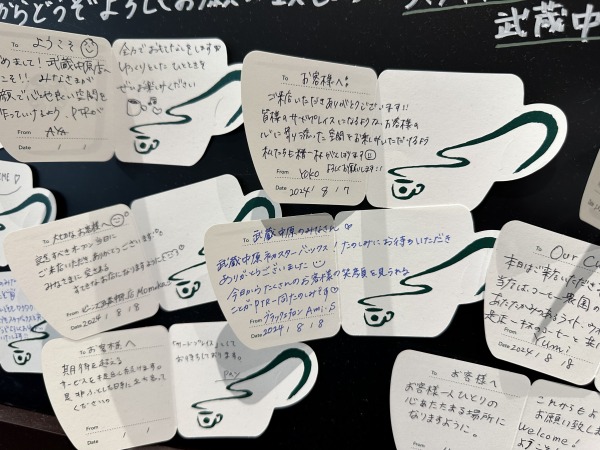 からどうぞよろしくお願い
武蔵中
To ようこそ
めまして!武蔵中原店へ
こそ!!みなさまが
顔で心地良い空間を
作っていけるよう
From AYA
Date / /
全力でおもてなしをします
ゆっくりとしたひとときを
ぜひお楽しみください
To お客様へ
ご来店いただきありがとうございます!!
皆様のサードプレイスになるような、お客様の
心に寄り添った空間をお楽しみいただけるよう
私たちも精一杯がんばります
From Yoko よろしくお願いします!!
Date 2024 / 8 / 17
To 大切なお客様へ
記念すべきオープン当日に
ご来店いただき、ありがとうございます。
みなさまに愛される
すてきなお店になりますように
From Momoka
Date 2024 / 8 / 18
To 武蔵中原のみなさん
武蔵中原初のスターバックス!たのしみにお待ちいただき
ありがとうございました
今日からたくさんのお客様の笑顔を見られる
ことがPTR一同たのしみです
From ブラックエプロン Ami.S
Date 2024 / 8 / 18
To Our Cu
本日はご来店いただき
当店はコーヒー農園の
あたたかみのあるライト、
是非一杯のコーヒーと
From Yumi
Date 2024 / 8 / 18
To お客様へ
期待を超える
サービスをお届けします。
是非、ふとした日常に立ち寄って
くださいね
From
Date / /
「サードプレイス」として
お待ちしております。
To お客様へ
お客様一人ひとりの
心あたたまる場所に
なりますように。
これからもよ
お願い致しま
Welcome!